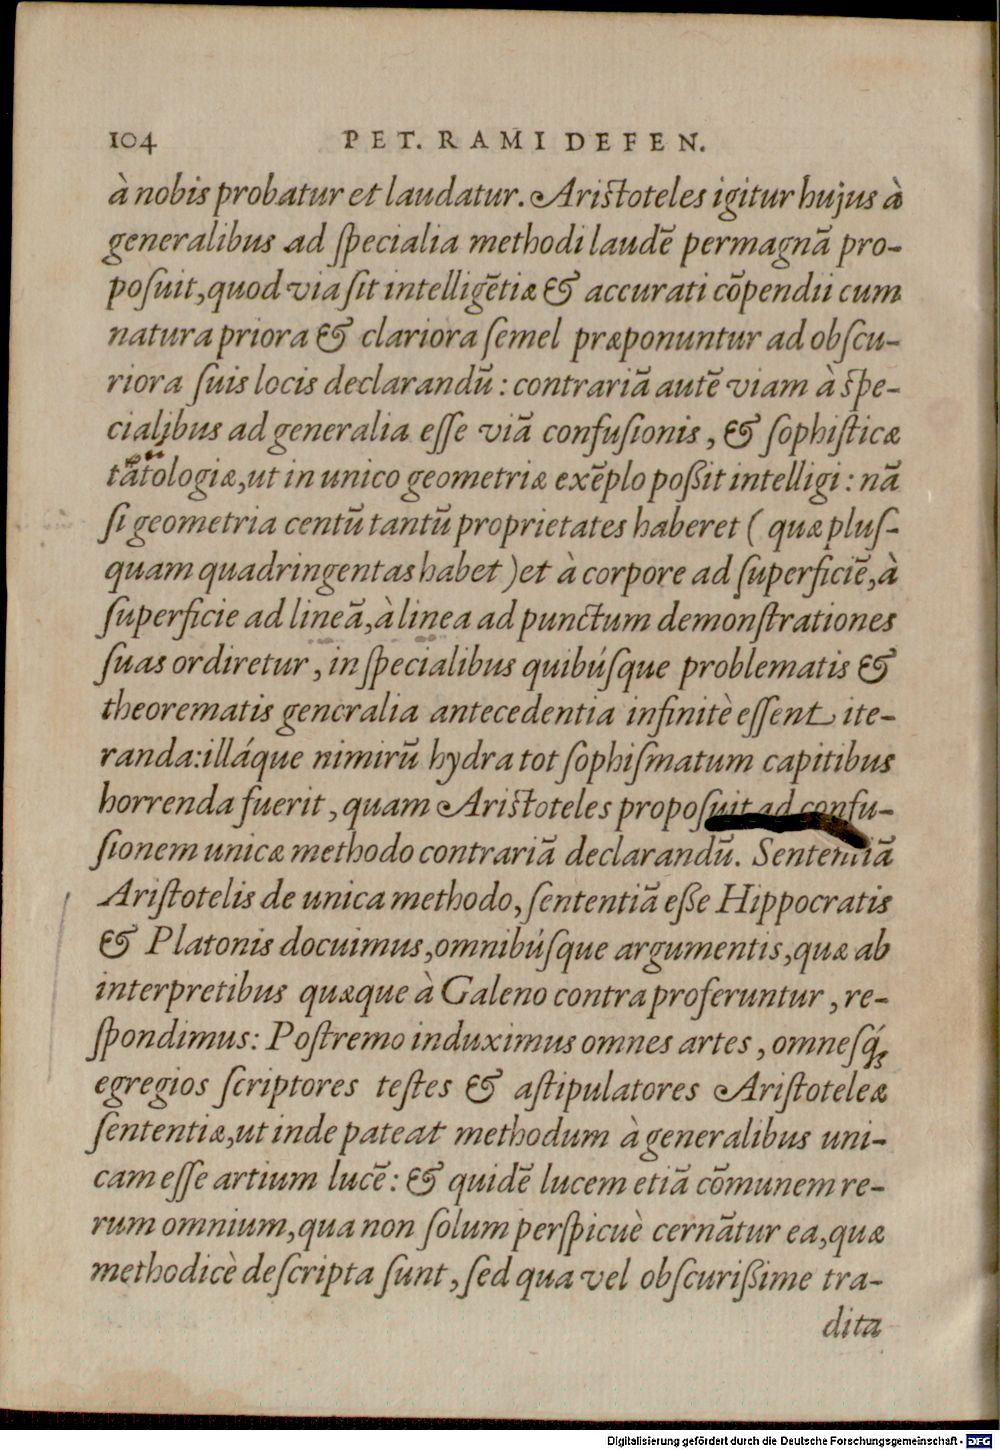 104 PET. RAMI DEFEN.
à nobis probatur et laudatur. Aristoteles igitur hujus à
generalibus ad ſpecialia methodi laudē permagnā pro-
poſuit, quod via ſit intelligētiæ & accurati cōpendii cum
natura priora & clariora ſemel præponuntur ad obſcu-
riora ſuis locis declarandū : contrariā autē viam à ſpe-
cialibus ad generalia eſſe viā confuſionis, & ſophiſticæ
tātologiæ, ut in unico geometriæ exēplo poßit intelligi : nā
ſi geometria centū tantū proprietates haberet ( quæ pluſ-
quam quadringentas habet ) et à corpore ad ſuperficiē, à
ſuperficie ad lineā, à linea ad punctum demonſtrationes
ſuas ordiretur, in ſpecialibus quibúſque problematis &
theorematis generalia antecedentia infinitè eſſent ite-
randa: illáque nimirū hydra tot ſophiſmatum capitibus
horrenda fuerit, quam Ariſtoteles propoſuit ad confu-
ſionem unicæ methodo contrariā declarandū. Sententiā
Ariſtotelis de unica methodo, ſententiā eße Hippocratis
& Platonis docuimus, omnibúſque argumentis, quæ ab
interpretibus quæque à Galeno contra proferuntur, re-
ſpondimus: Poſtremo induximus omnes artes, omneſq́;
egregios ſcriptores teſtes & aſtipulatores Ariſtoteleæ
ſententiæ, ut inde pateat methodum à generalibus uni-
cam eſſe artium lucē: & quidē lucem etiā cōmunem re-
rum omnium, qua non ſolum perſpicuè cernātur ea, quæ
methodicè deſcripta ſunt, ſed qua vel obſcurißime tra-
dita
Digitalisierung gefördert durch die Deutsche Forschungsgemeinschaft - DFG